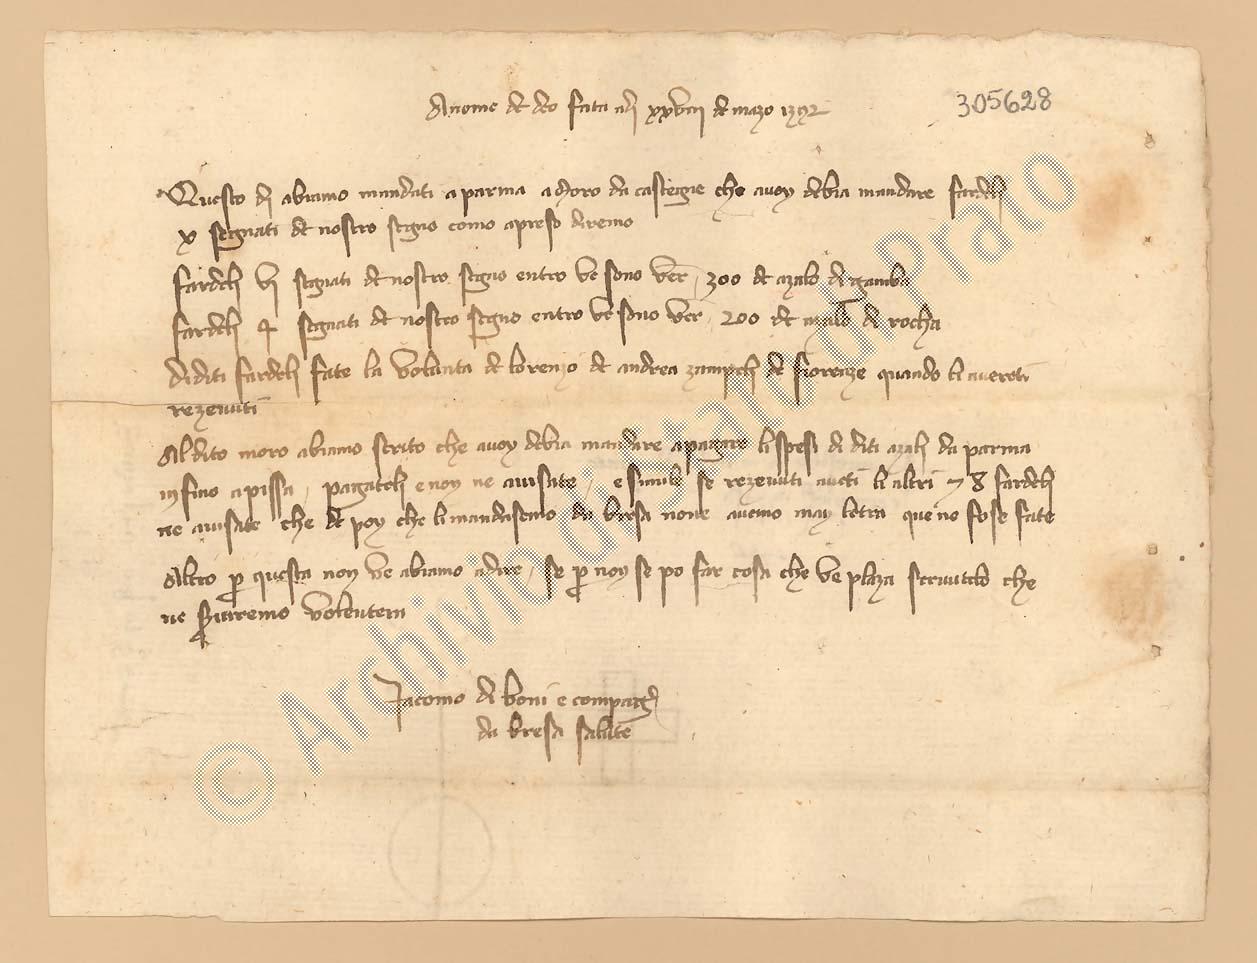 A nome de deo fata adi xxviii de mazo 1392
305628
Questo di abiamo mandati a parma a Moro da castegie che a uoy debia mandare fardeli
x segnati de nostro segno como apreso diremo
fardeli vi segnati de nostro segno entro ve sono ver. 300 de azalo di gamba
fardeli 4 segnati de nostro segno entro ve sono ver. 200 de azalo di rocha
Diditi fardeli fate la volunta de lorenzo de andrea de fiorenze quando li avereti
rezevuti
Al dito moro abiamo scrito che a uoy debia mandare a pagare li spesi di diti azali da parma
infino a pissa, pagateli e noy ne avisate, e simile se rezevuti aveti li altri 8 fardeli
ne avisate che de poy che li mandasemo da bresa none avemo may letra que ne fose fate
Altro per questa non ve abiamo a dire, se per noy se po far cosa che ve plaza scrivitelo che
ne serviremo volentera
Jacomo di boni e compagni
da bresa salute
© Archivio di Stato di Prato